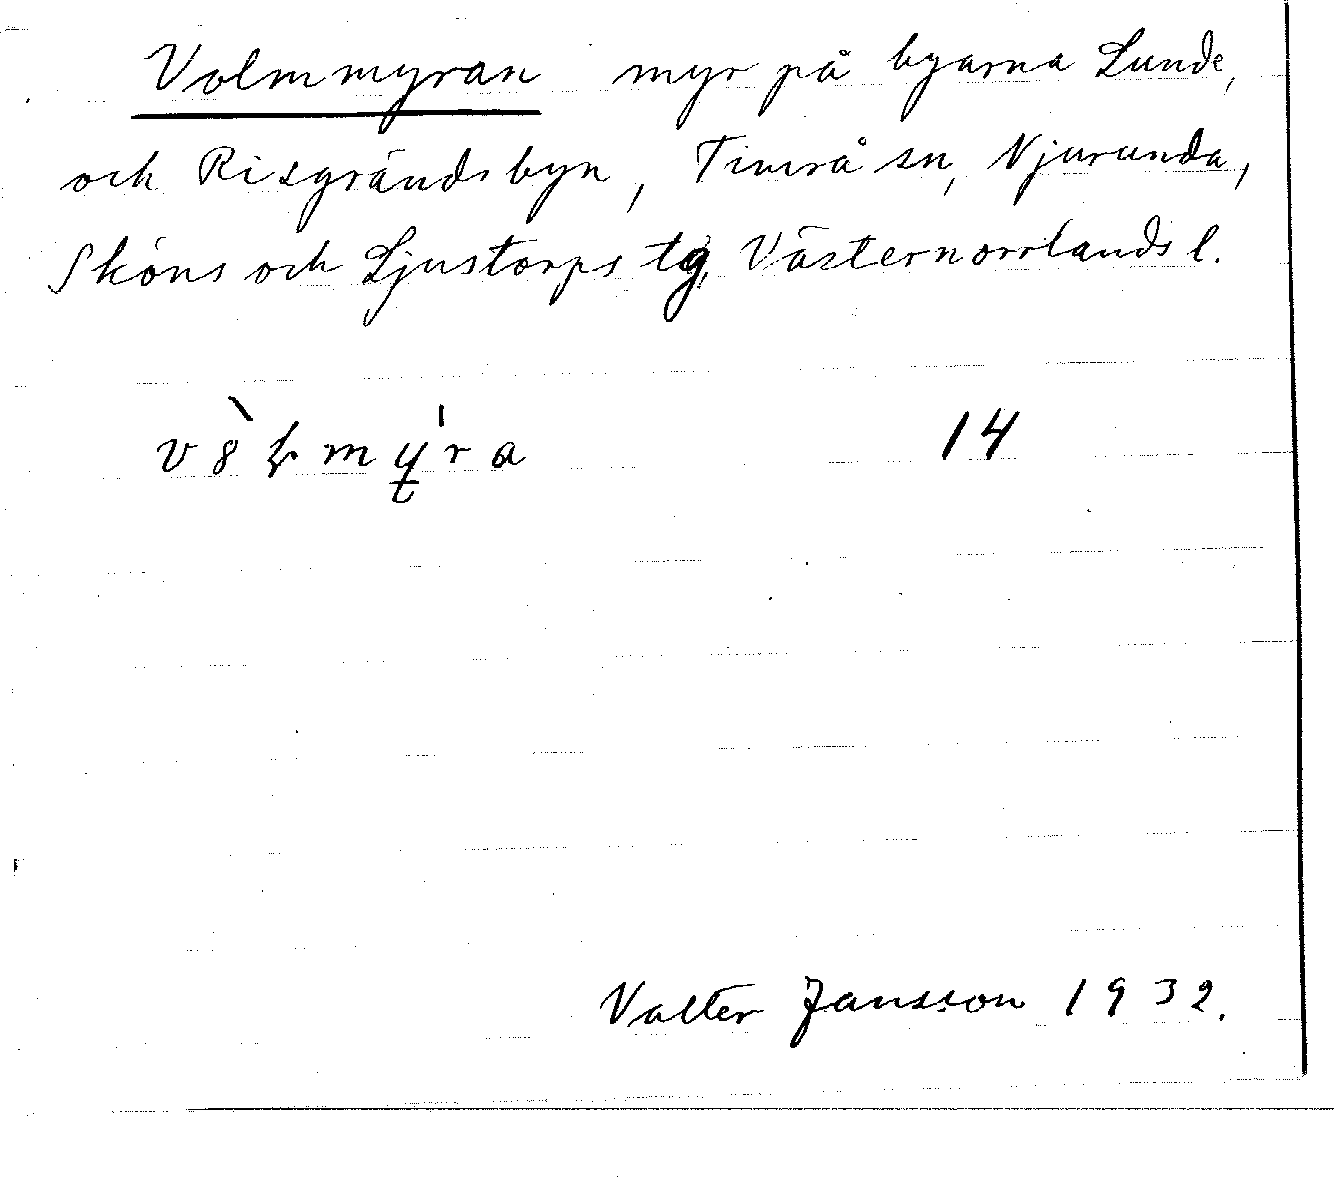 Volmmyran myr på byarna Lunde,
och Risgrändsbyn, Timrå sn, Njurunda,
Sköns och Ljustorps tg, Västernorrlands l.
14
Valter Jansson 1932.